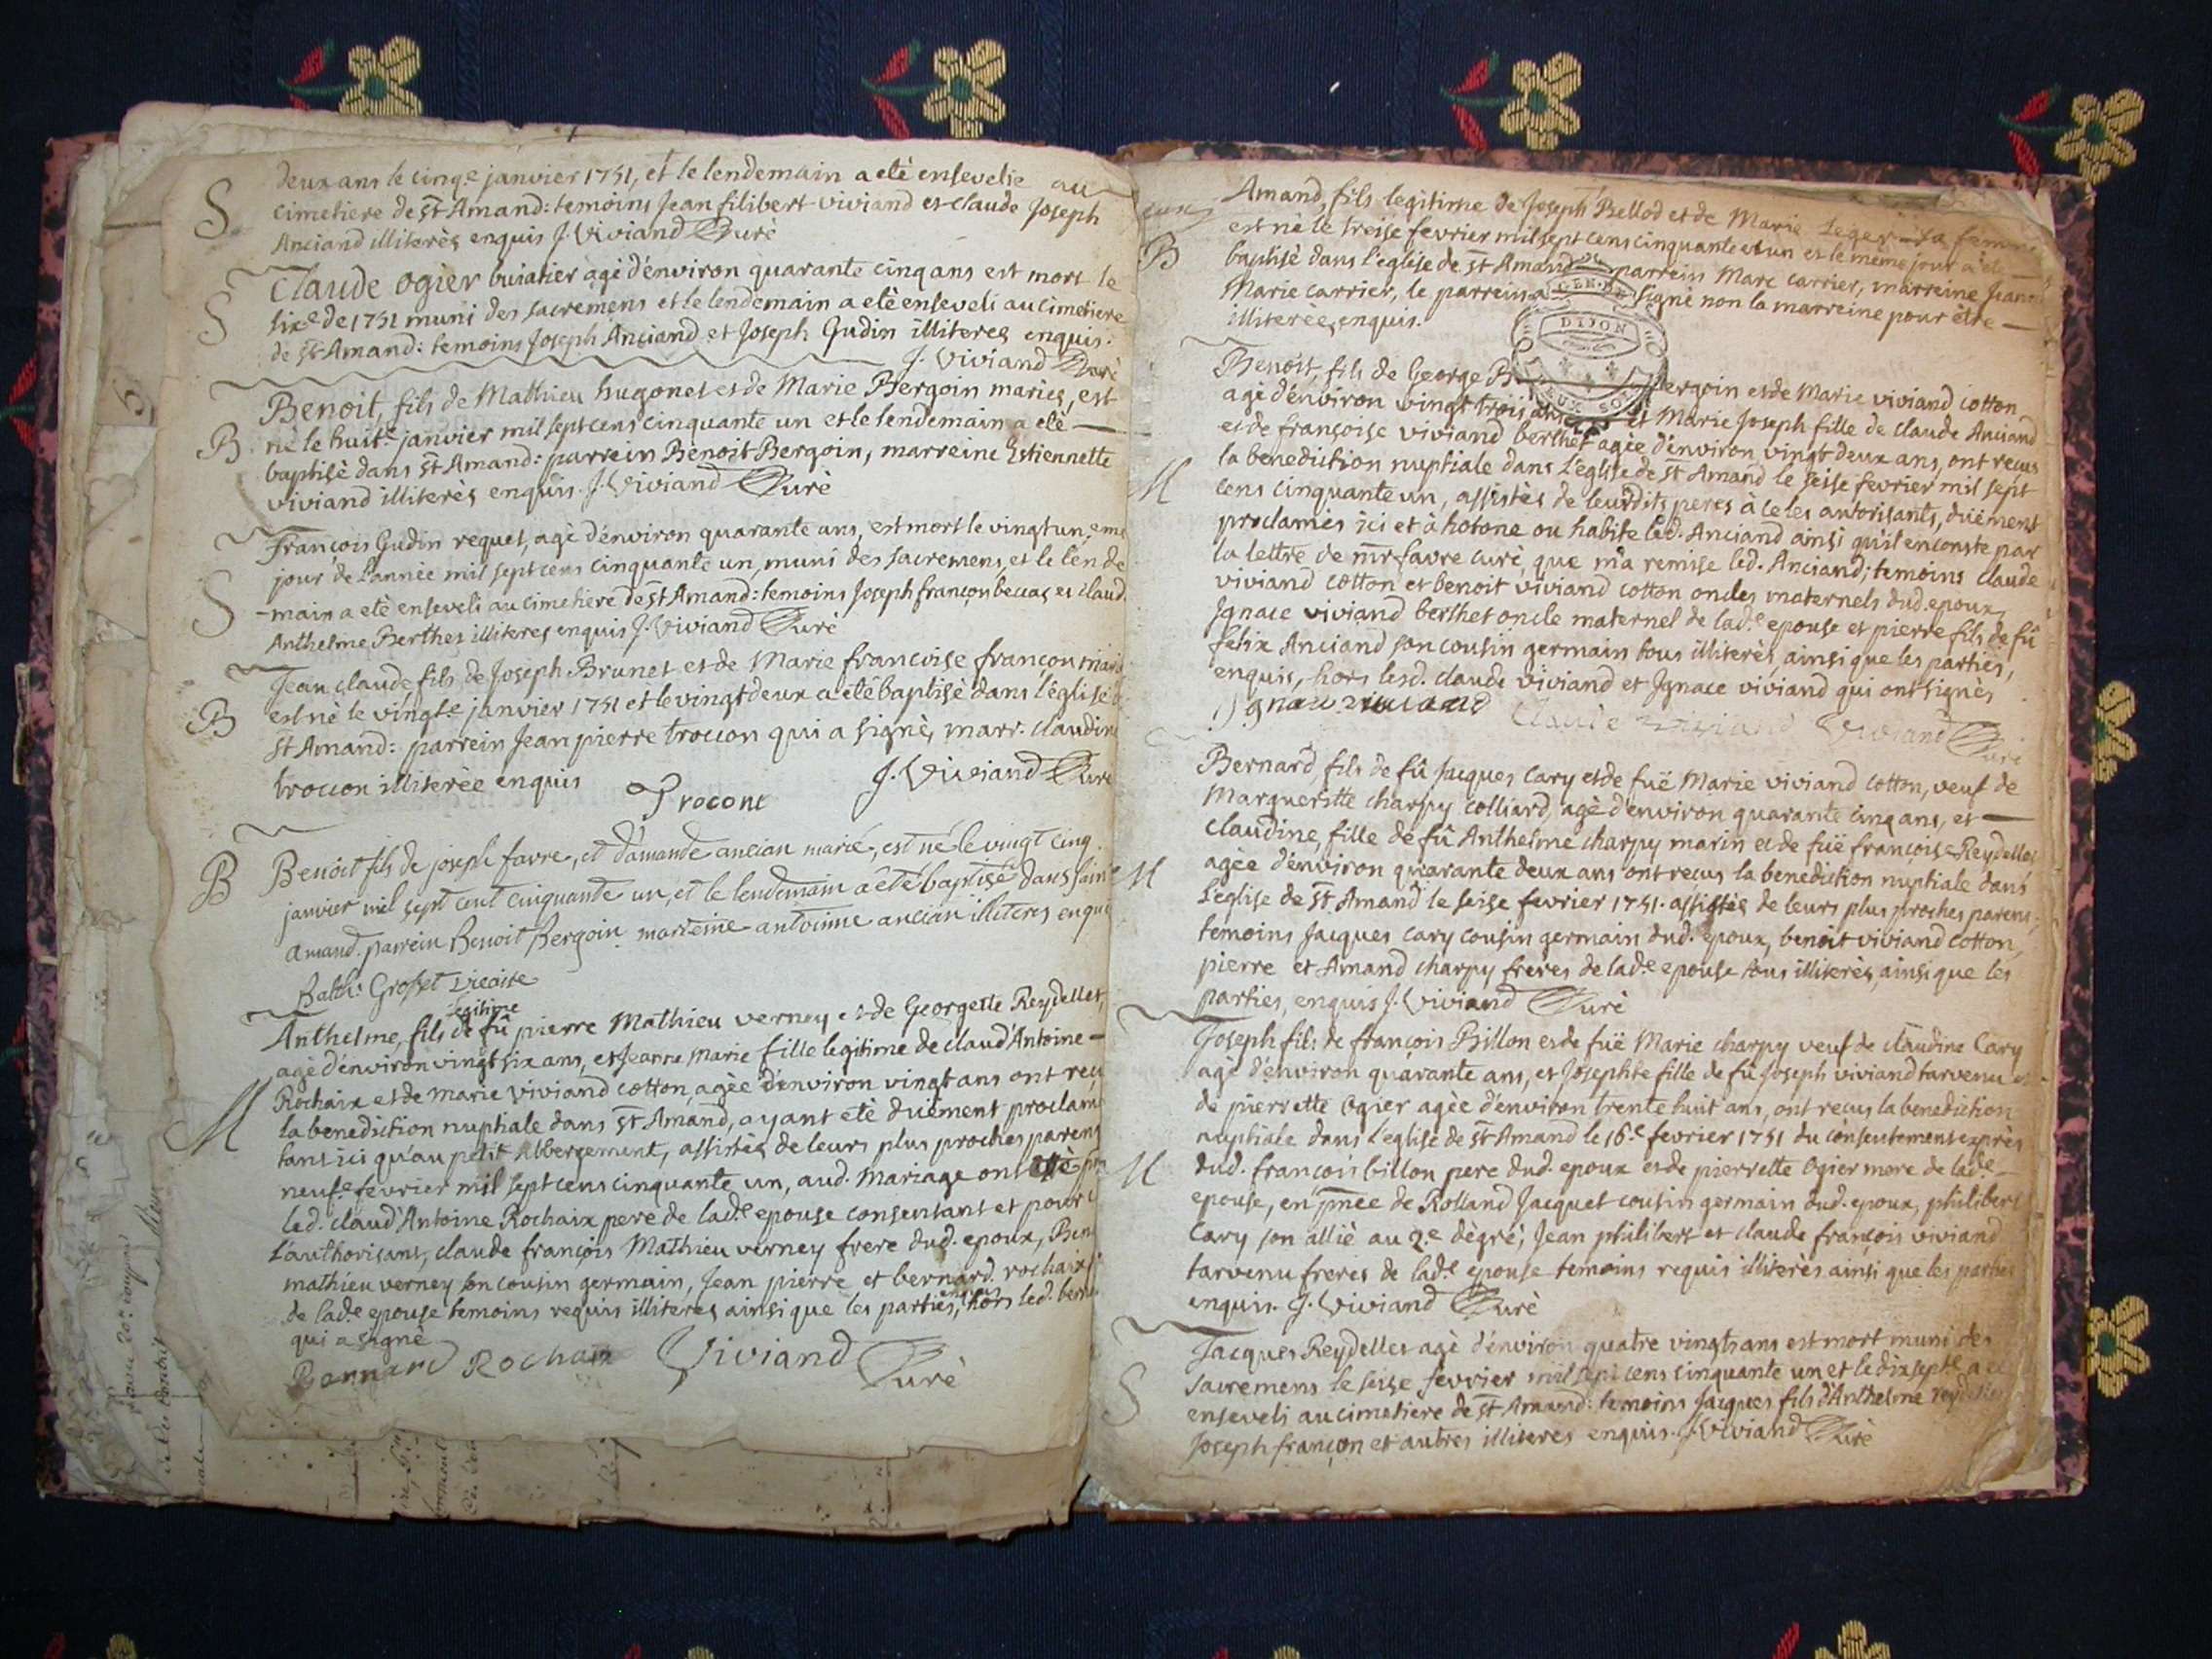 S
deux ans le cinq.e janvier 1751, et le lendemain a etè ensevelie au
cimetiere de st Amand: temoins Jean filibert viviand et claude Joseph
Anciand illiterès enquis J. Viviand Curè
S
Claude Ogier buiatier agè d'environ quarante cinq ans est mort le
six.e de 1751 muni des sacremens et le lendemain a etè enseveli au cimetiere
de st Amand: temoins Joseph Anciand et Joseph Gudin illiteres enquis.
J. Viviand Curè
B
Benoit, fils de Mathieu hugonet et de Marie Bergoin mariès, est
nè le huit.e janvier mil sept cens cinquante un et le lendemain a etè
baptisè dans st Amand: parrein Benoit Bergoin, marreine Estiennette
viviand illiterès enquis. J. Viviand Curè
S
François Gudin requet, agè d'environ quarante ans, est mort le vingt un.eme
jour de l'annèe mil sept cens cinquante un, muni des sacremens, et le len de
-main a etè enseveli au cimetiere de st Amand: temoins Joseph françon beccaz et claud.
Anthelme Berthet illiteres enquis J. Viviand Curè
B
Jean claude, fils de Joseph Brunet et de Marie francoise françon mari
est nè le vingt.e janvier 1751 et le vingt deux a etè baptisè dans l'èglise
st Amand: parrein Jean pierre troccon qui a signè, marr. claudine
troccon illiterèe enquis
Trocont
J. Viviand Curè
B
Benoit fils de joseph favre, et d'amande ancian mariè, est nè le vingt cinq
janvier mil sept cent cinquante un, et le lendemain a ètè baptisé dans saint
amand. parrein Benoit Bergoin marreine antoinne ancian illiteres enquis
Balth. Grosset vicaire
legitime
M
Anthelme, fils de fû pierre Mathieu verney et de Georgette Reydellet,
agè d'environ vingt six ans, et Jeanne Marie fille legitime de claud'Antoine
Rochaix et de Marie viviand cotton, agèe d'environ vingt ans ont reçu
la benediction nuptiale dans st Amand, ayant etè duèment proclamè
tant ici qu'au petit Abbergement, assistès de leurs plus proches parens
neuf.e fevrier mil sept cens cinquante un, aud. Mariage ont etè
led. claud'Antoine Rochaix pere de lad.e epouse consentant et pour
l'authorisant, claude françois Mathieu verney frere dud. epoux,
mathieu verney son cousin germain, Jean pierre et bernard rochaix
enquis
de lad.e epouse temoins requis illiteres ainsi que les parties, hors led. bern
qui a signè
Bernard Rochaix Viviand Curè
B
Amand, fils legitime de Joseph Bellod et de Marie Leger sa femme
est nè le treise fevrier mil sept cens cinquante et un et le même jour a etè
baptisè dans l'eglise de st Amand parrein Marc carrier, marreine Jeanne
Marie carrier, le parrein a signè non la marreine pour être
illiterèe, enquis.
DIJON
DEUX SOLS
M
Benoit, fils de George Bergoin et de Marie viviand cotton
agè d'environ vingt trois ans et Marie Joseph fille de claude Anciand
et de françoise viviand berthet agèe d'environ vingt deux ans, ont reçus
la benediction nuptiale dans l'eglise de st Amand le seise fevrier mil sept
cens cinquante un, assistès de leursdits peres à ce les autorisants, duèment
proclamès ici et à hotone ou habite led. Anciand ainsi qu'il en conste par
la lettre de mr favre curè, que m'a remise led. Anciand; temoins claude
viviand cotton et benoit viviand cotton oncles maternels dud. epoux,
Ignace viviand berthet oncle maternel de lad.e epouse et pierre fils de fû
felix Anciand son cousin germain tous illiterès, ainsi que les parties,
enquis, hors lesd. claude viviand et Ignace viviand qui ont signès
Ignace viviand Claude viviand Viviand Curè
M
Bernard fils de fû Jacques Cary et de fuë Marie viviand cotton, veuf de
Margueritte charpy colliard, agè d'environ quarante cinq ans, et
claudine, fille de fû Anthelme charpy marin et de fuë françoise Reydellet
agèe d'environ quarante deux ans ont reçus la benediction nuptiale dans
l'eglise de st Amand le seise fevrier 1751. assistès de leurs plus proches parens;
temoins Jacques cary cousin germain dud. epoux, benoit viviand cotton,
pierre et Amand charpy freres de lad.e epouse tous illiterès, ainsi que les
parties, enquis J. Viviand Curè
M
Joseph fils de françois Billon et de fuë Marie charpy veuf de claudine Cary
agè d'environ quarante ans, et Josephte fille de fû Joseph viviand tarvenu et
de pierrette Ogier agèe d'environ trente huit ans, ont reçus la benediction
nuptiale dans l'eglise de st Amand le 16.e fevrier 1751 du consentement exprès
dud. françois billon pere dud. epoux et de pierrette Ogier mere de lad.e
epouse, en pnce de Rolland Jacquet cousin germain dud. epoux, philibert
Cary son alliè au 2.e dègrè; Jean philibert et claude françois viviand
tarvenu freres de lad.e epouse temoins requis illiterès ainsi que les parties
enquis. J. Viviand Curè
S
Jacques Reydellet agè d'environ quatre vingts ans est mort muni des
sacremens le seise fevrier mil sept cens cinquante un et le dix sept.e a etè
enseveli au cimetiere de st Amand: temoins Jacques fils d'Anthelme reydellet
Joseph françon et autres illiteres enquis. J. Viviand Curè